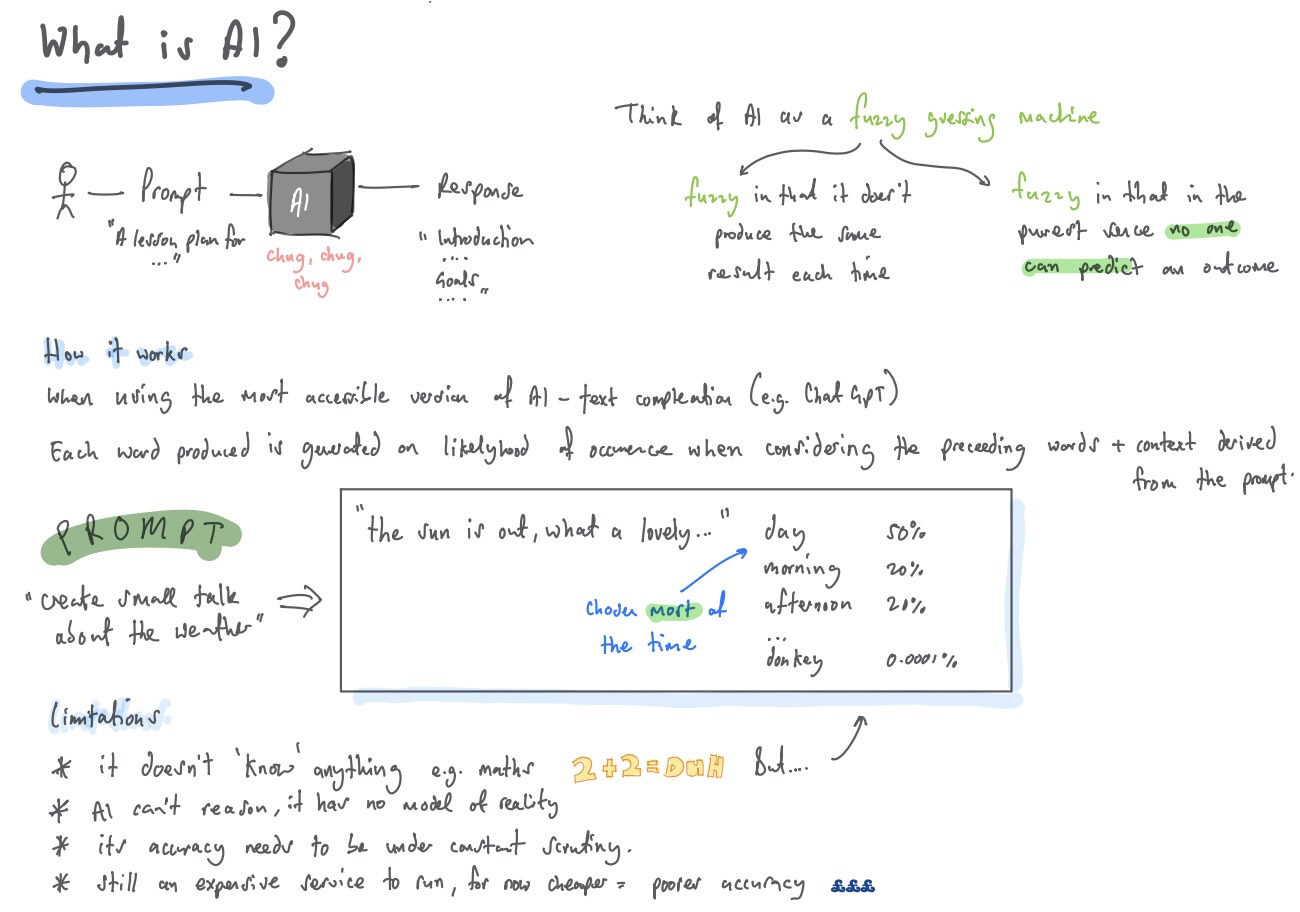 What is AI?
Think of AI as a fuzzy guessing machine
Prompt
AI
Response
"A lesson plan for
..."
chug, chug,
chug
" Introduction
....
Goals
.... "
fuzzy in that it doesn't
produce the same
result each time
fuzzy in that in the
purest sence no one
can predict an outcome
How it works
When using the most accessible version of AI - text compleation (e.g. Chat GPT)
Each word produced is generated on likelyhood of occurence when considering the preceeding words + context derived
from the prompt.
PROMPT
"create small talk
about the weather"
"the sun is out, what a lovely..."
day 50%
morning 20%
afternoon 20%
...
donkey 0.0001%
chosen most of
the time
Limitations
* it doesn't 'know' anything e.g. maths 2+2=DUH But....
* AI can't reason, it has no model of reality
* its accuracy needs to be under constant scrutiny.
* still an expensive service to run, for now cheaper = poorer accuracy £££